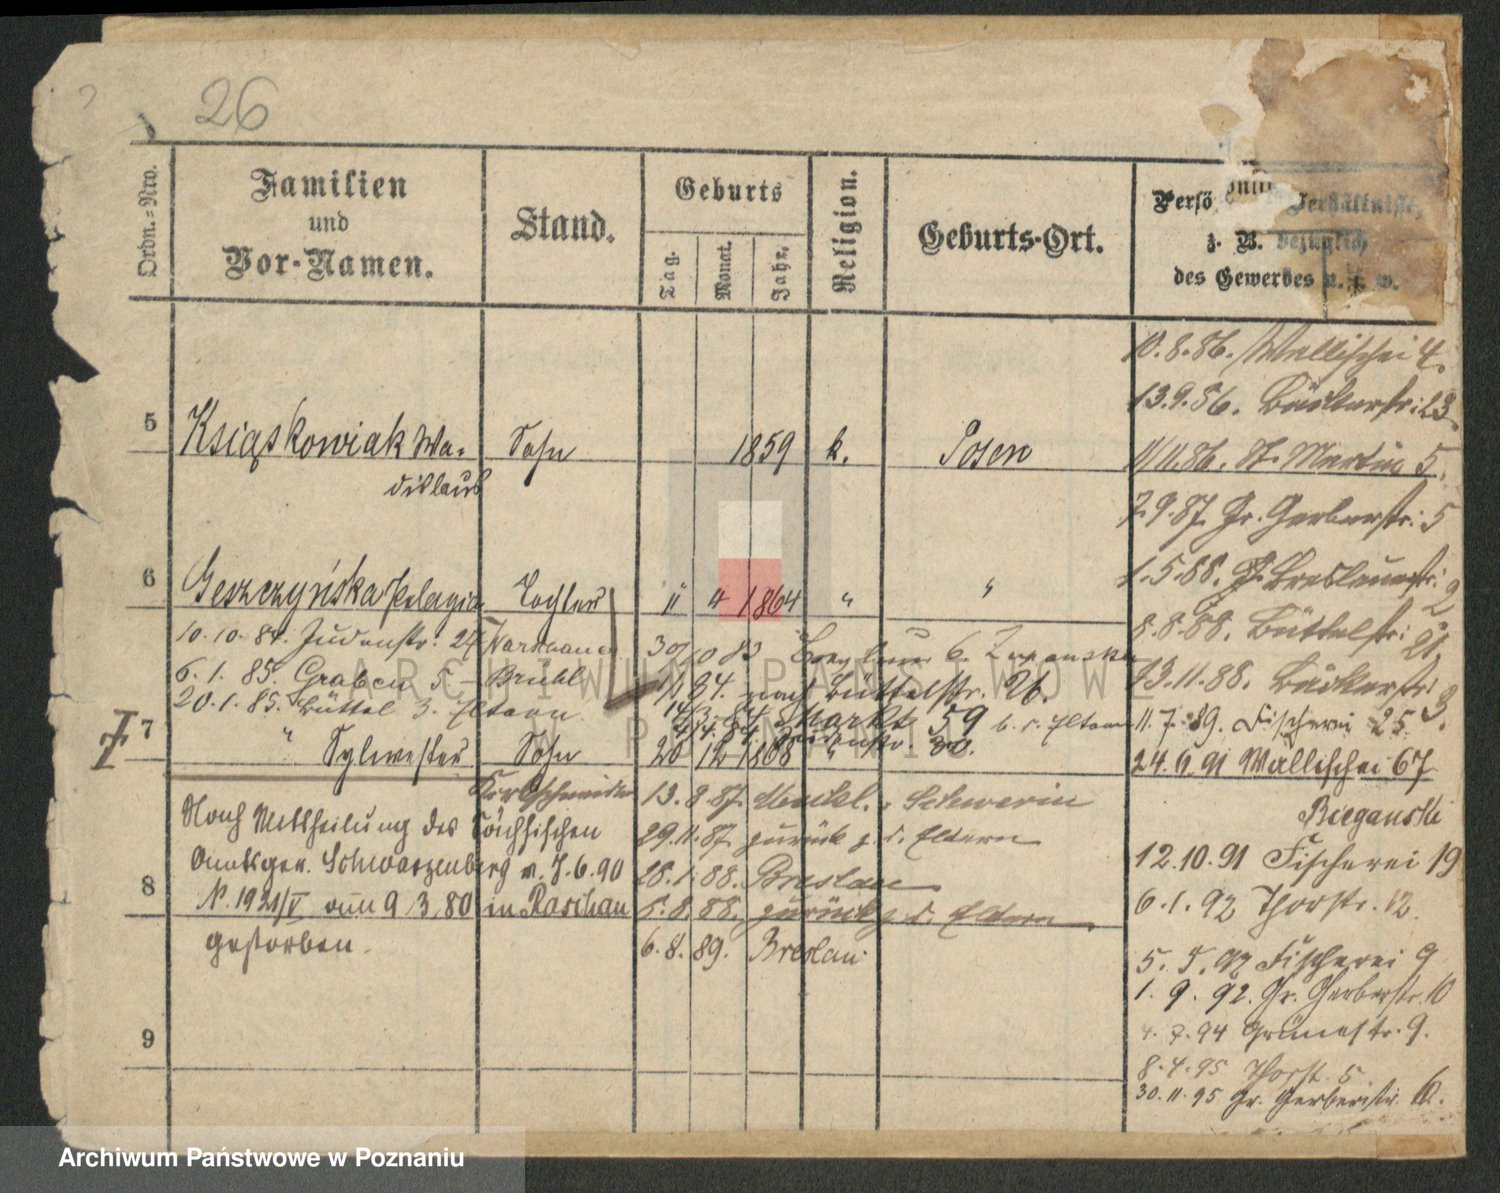 26
Ordn.=Nro.
Familien
und
Vor-Namen.
Stand.
Geburts
Tag.
Monat.
Jahr.
Religion.
Geburts-Ort.
Persö Verhältnisse,
z. B. bezüglich
des Gewerbes u. s. w.
10.8.86. Wallischei 4.
13.9.86. Bäckerstr: 23.
5 Ksiąskowiak Wa- Sohn 1859 k. Posen
dislaus
11/11.86. St. Martin 5.
7.9.87 Gr. Gerberstr: 5
6 Geszczyńska Pelagia Tochter 11 4 1864 " "
1.5.88. Breslauerstr: 9
8.8.88. Büttelstr: 21.
10.10.84. Judenstr. 27 Warschauer
6.1.85. Graben 5 – Brühl
20.1.85. Büttel 3. Eltern.
30/10 83
1/2 84. nach Büttelstr. 26.
Markt 59 b. d. Eltern
13.11.88. Bäckerstr 3.
11.7.89. Fischerei 25.
7 " Sylwester Sohn 20 12 1868 "
24.9.91 Wallischei 67
Bieganski
Korbschneider
13.8.87. Meckl. Schwerin
29.11.87 zurück z. d. Eltern
28.1.88. Breslau
5.8.88. zurück z. d. Eltern
6.8.89. Breslau
8
Nach Mittheilung des Sächsischen
Amtsger. Schwarzenberg v. 7.6.90
N. 1921/V am 9/3.80 in Raschau
gestorben.
12.10.91 Fischerei 19
6.1.92 Thorstr. 12.
5.5.92 Fischerei 9
1.9.92. Gr. Gerberstr. 10
4.7.94 Grünestr. 9.
8.4.95 Thorst. 5
30.11.95 Gr. Gerberstr.
9
ARCHIWUM PAŃSTWOWE
W POZNANIU
Archiwum Państwowe w Poznaniu